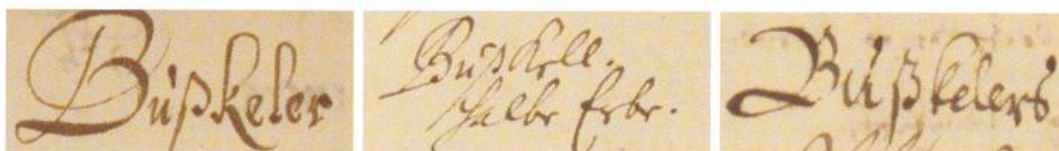 Büßkeler
Büßkell.
halbe Erbe.
Büßkelers